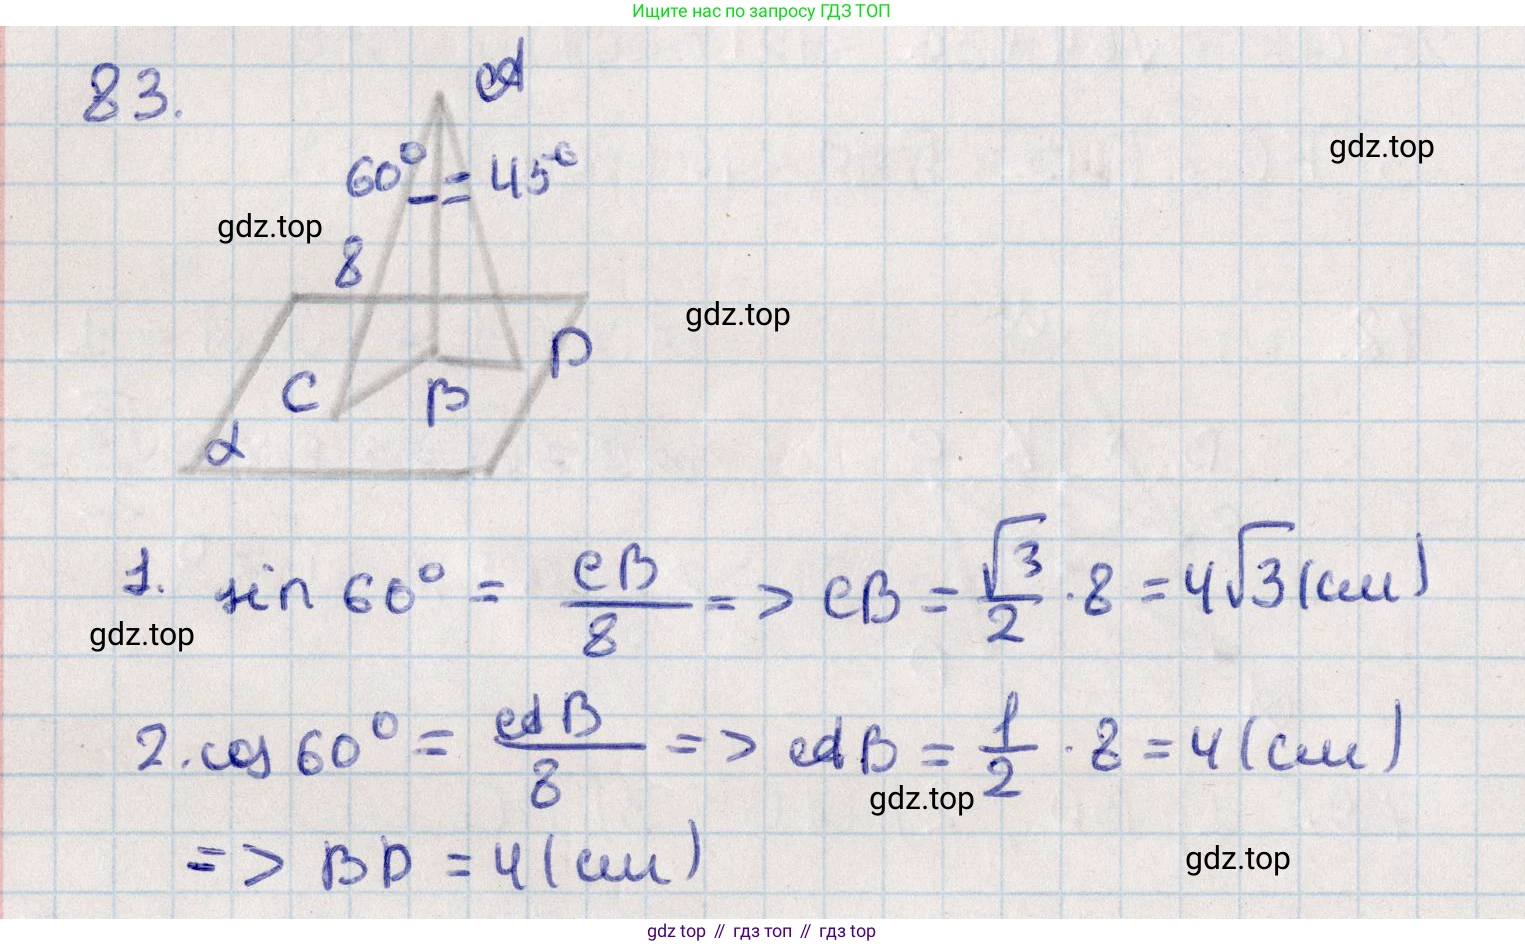 Ищите нас по запросу ГДЗ ТОП
83.
A
60° 45°
gdz.top
gdz.top
8
gdz.top
C B D
α
1. sin 60° = CB/8 => CB = √3/2 · 8 = 4√3 (см)
gdz.top
2. cos 60° = AB/8 => AB = 1/2 · 8 = 4 (см)
gdz.top
=> BD = 4 (см)
gdz.top
gdz top // гдз топ // гдз top